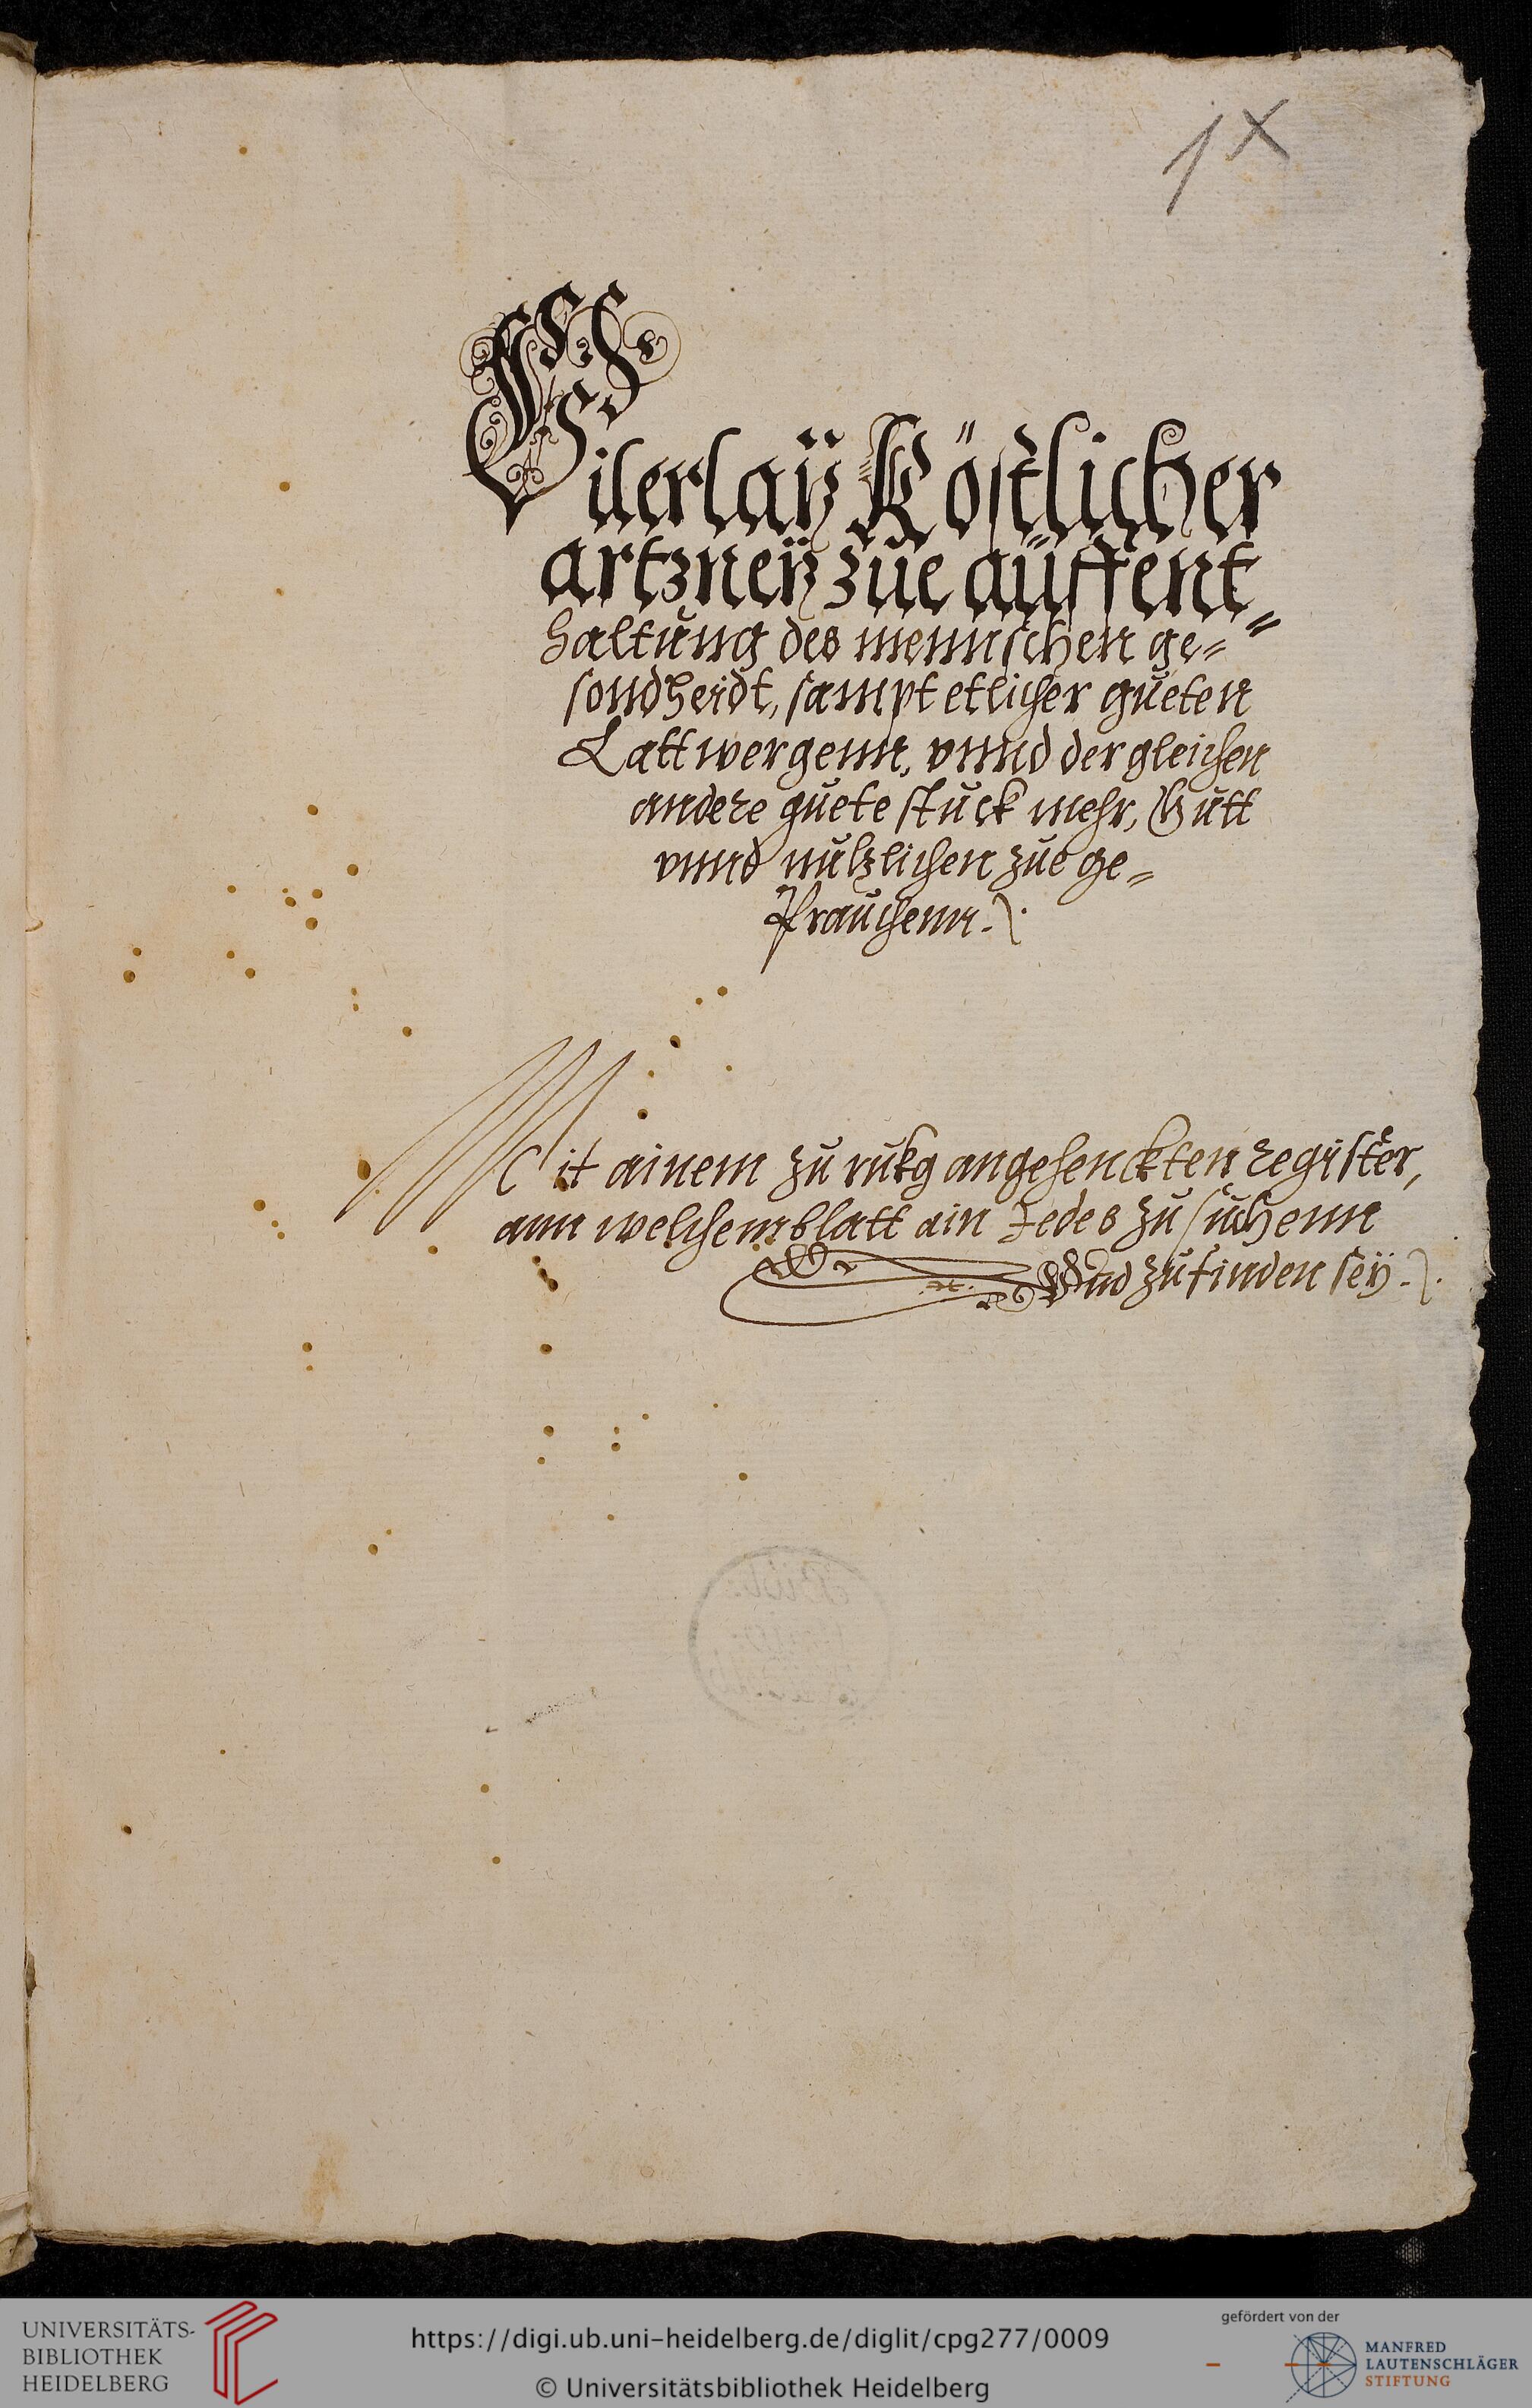 1x
Vilerlaÿ Köstlicher
artzneÿ zue auffent=
haltung des mennschen ge=
sondheidt, sampt etlicher gueten
Lattwergenn, vnnd dergleichen
andere guete stuck mehr, Gutt
vnnd nutzlichen zue ge=
prauchenn.
Mit ainem zu rukg angehenckten register,
ann welchem blatt ain Jedes zu suchenn
Vnd zu finden seÿ.
UNIVERSITÄTS-
BIBLIOTHEK
HEIDELBERG
https://digi.ub.uni-heidelberg.de/diglit/cpg277/0009
© Universitätsbibliothek Heidelberg
gefördert von der
MANFRED
LAUTENSCHLÄGER
STIFTUNG